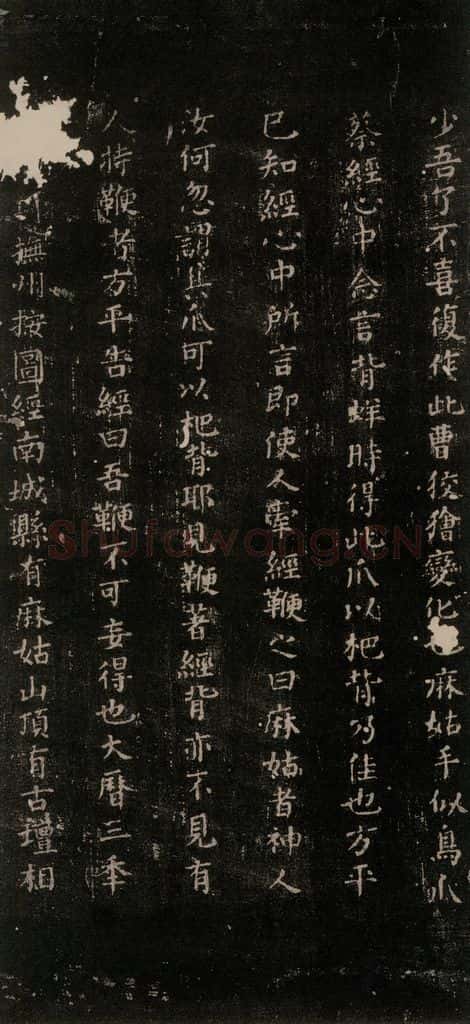 少吾了不喜復作此曹狡獪變化也麻姑手似鳥爪
蔡經心中念言背蛘時得此爪以杷背乃佳也方平
已知經心中所言即使人牽經鞭之曰麻姑者神人
汝何忽謂其爪可以杷背耶見鞭著經背亦不見有
人持鞭者方平告經曰吾鞭不可妄得也大曆三年
撫州按圖經南城縣有麻姑山頂有古壇相
Shufawang.CN